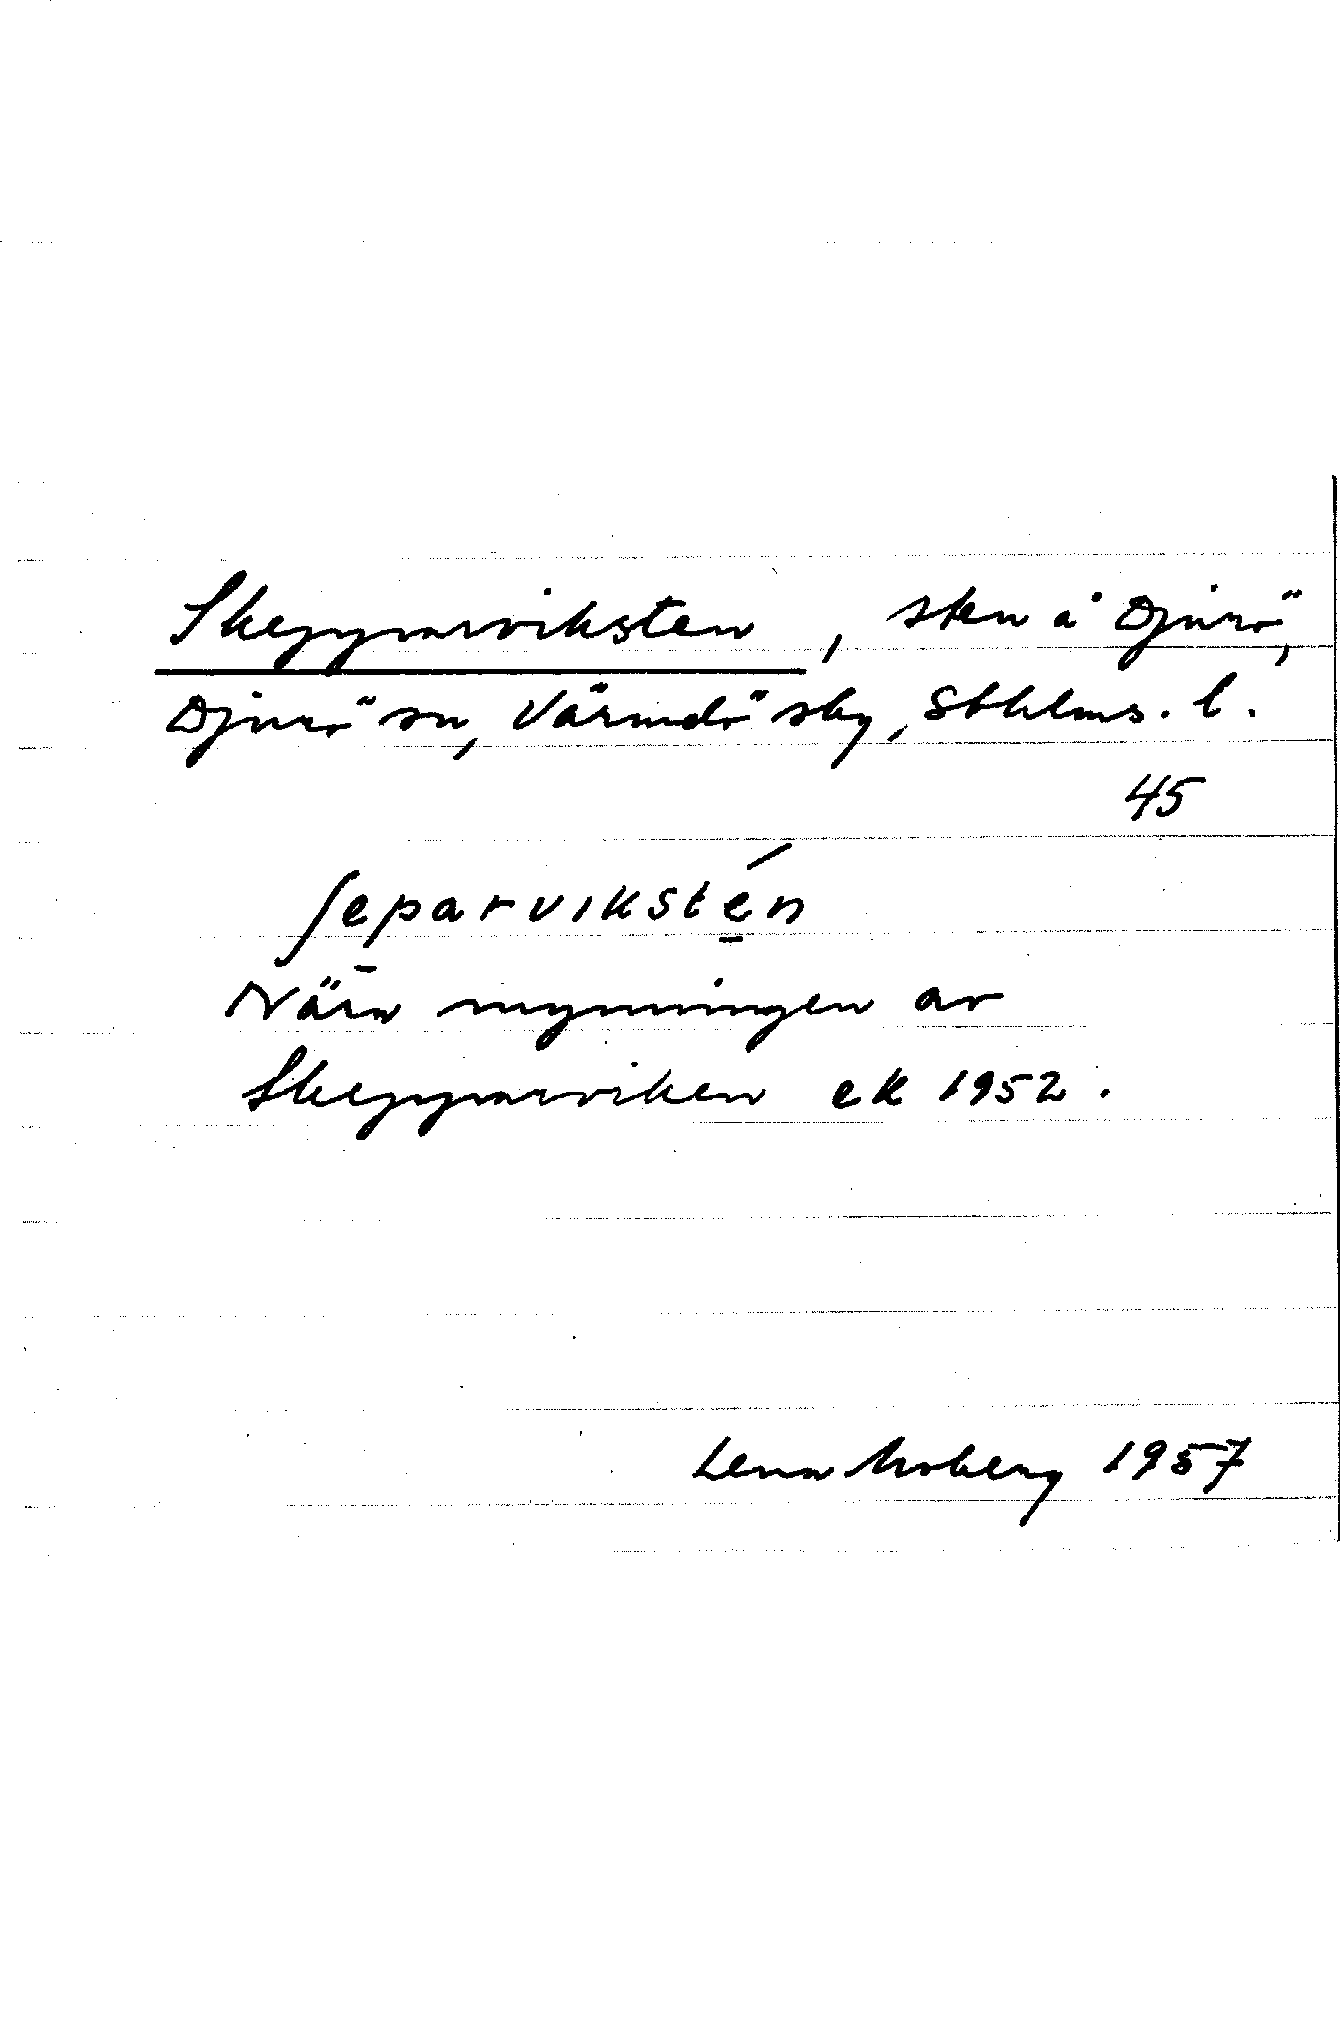 Skepparviksten, sten å Djurö,
Djurö sn, Värmdö sky, Sthlms. l.
45
ʃeparvikstén
Nära mynningen av
Skepparviken ek 1952.
Lena Moberg 1957